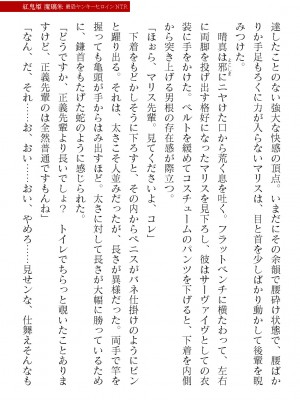 紅鬼姫 魔璃朱 最強ヤンキーヒロインNTR
達したことのない強大な快感の頂点。いまだにその余韻で腰砕け状態で、腰ばか
りか手足もろくに力が入らないマリスは、目と首を少しばかり動かして後輩を睨
みつけた。
晴真は邪にニヤけた口から荒く息を吐く。フラットベンチに横たわって、大股
に両脚を投げ出す格好になったマリスを見下ろし、彼はサーヴァイヴとしての衣
装に手をかけた。ベルトを緩めてコスチュームのパンツを下げると、下着を内側
から突き上げる男根の存在感が際立つ。
「ほぉら、マリス先輩、見てくださいよ、コレ」
下着をもどかしそうに下ろすと、その内からペニスがバネ仕掛けのようにビン
と躍り出る。それは、太さこそ人並みだったが、長さが異様だった。両手で竿を
握っても亀頭が手からはみ出すほど。太さに対して長さが大幅に勝っているため
に、鎌首をもたげた蛇のように感じられた。
「どうですか、正義先輩より長いでしょ？　トイレでちらっと覗いたことありま
すけど、正義先輩のは全然普通ですもんね」
「なん、だ、それ……お、おい、おい、やめろ……見せンな、仕舞えそんなも